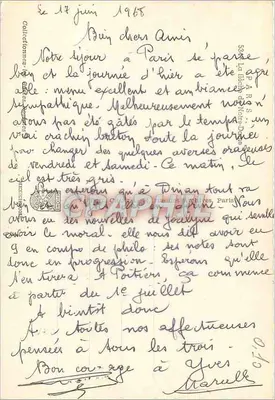 le 17 juin 1968
Bien chers Amis
Notre séjour à Paris se passe
bien et la journée d'hier a été agré
able : menu excellent et ambiance
sympathique. Malheureusement nous n'
avons pas été gâtés par le temps : un
vrai crachin breton toute la journée
pour changer des quelques averses orageuses
de vendredi et samedi. Ce matin, le
ciel est très gris.
Nous espérons qu'à Dinan tout va
bien et
avons eu les nouvelles qui semble
avoir le moral. elle nous dit avoir eu
9 en compo de philo : ses notes sont
donc en progression. Espérons qu'elle
s'en tirera. A Poitiers, ça commence
à partir du 1e juillet
A bientôt donc
A toutes nos affectueuses
pensées à tous les trois.
Bon courage à Yves